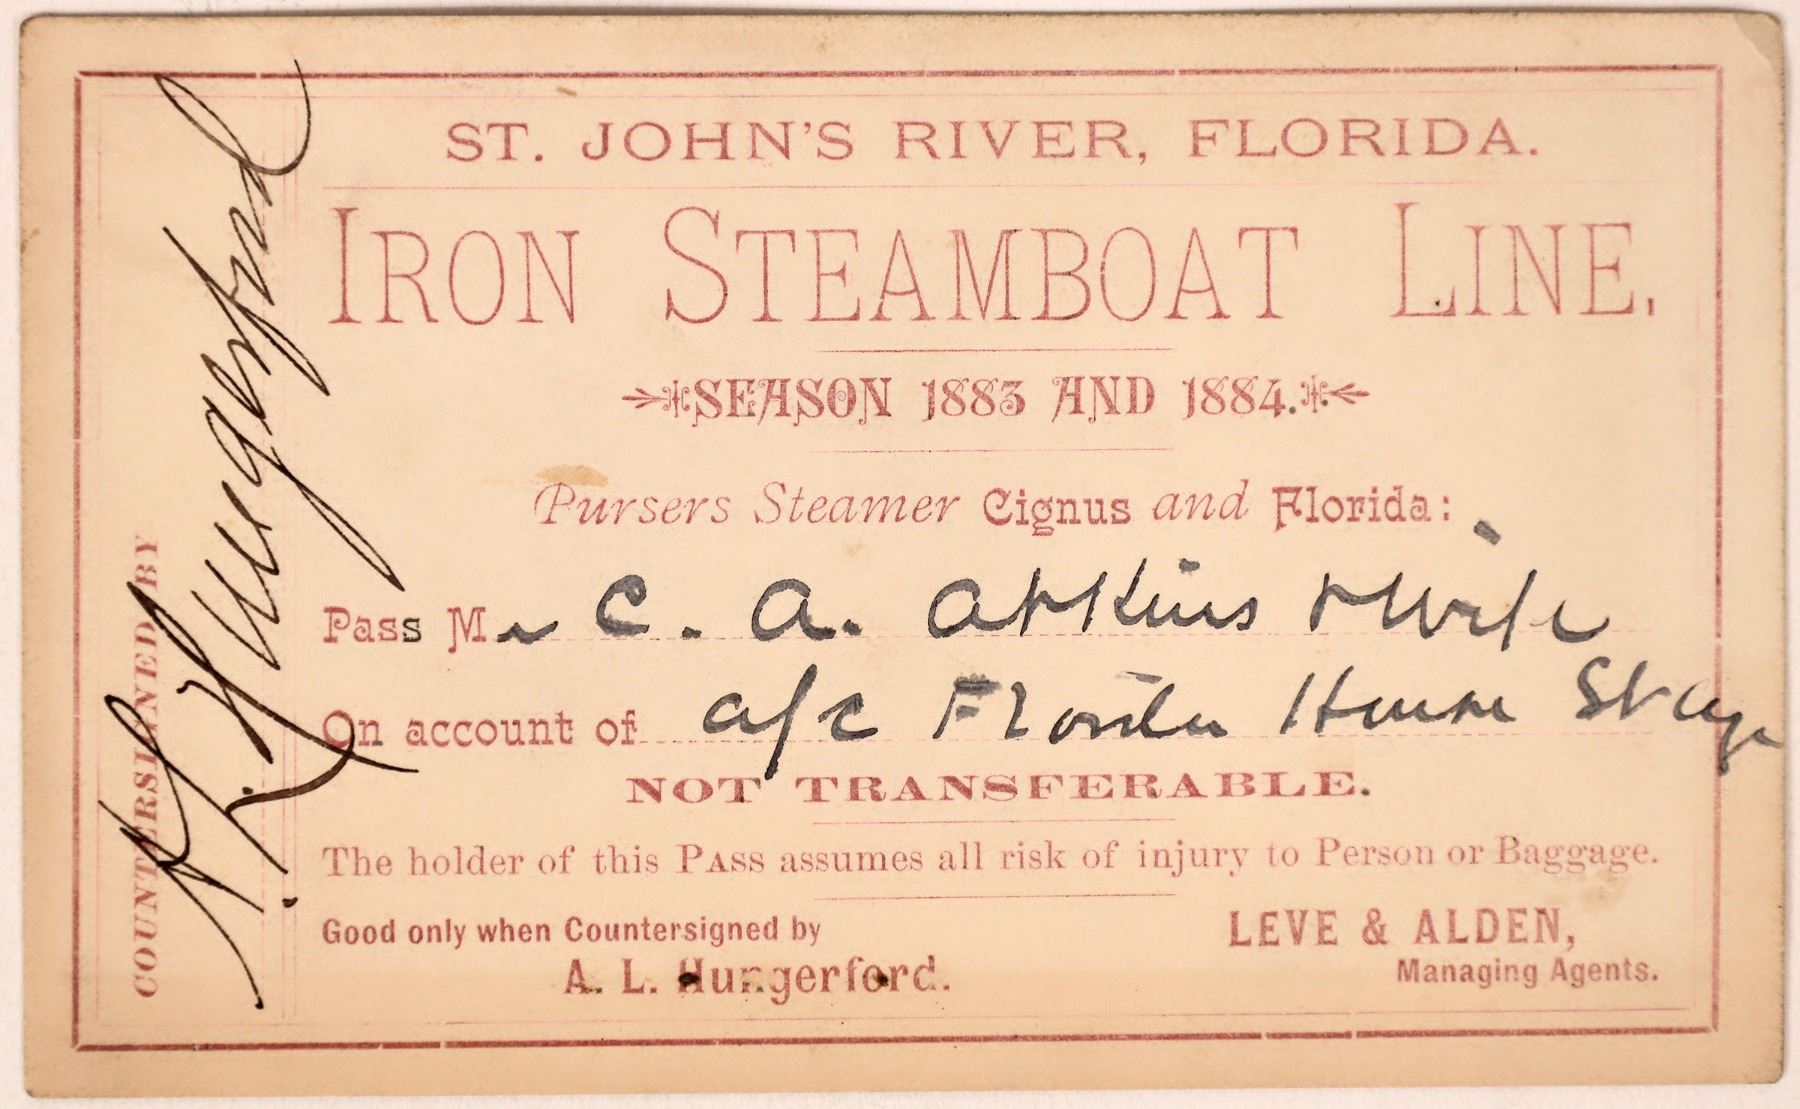 ST. JOHN'S RIVER, FLORIDA.
IRON STEAMBOAT LINE.
SEASON 1883 AND 1884.
Pursers Steamer Cignus and Florida:
Pass Mr C. A. Atkins & Wife
On account of a/c Florida House Stage
NOT TRANSFERABLE.
The holder of this PASS assumes all risk of injury to Person or Baggage.
Good only when Countersigned by
A. L. Hungerford.
LEVE & ALDEN,
Managing Agents.
COUNTERSIGNED BY
A. L. Hungerford